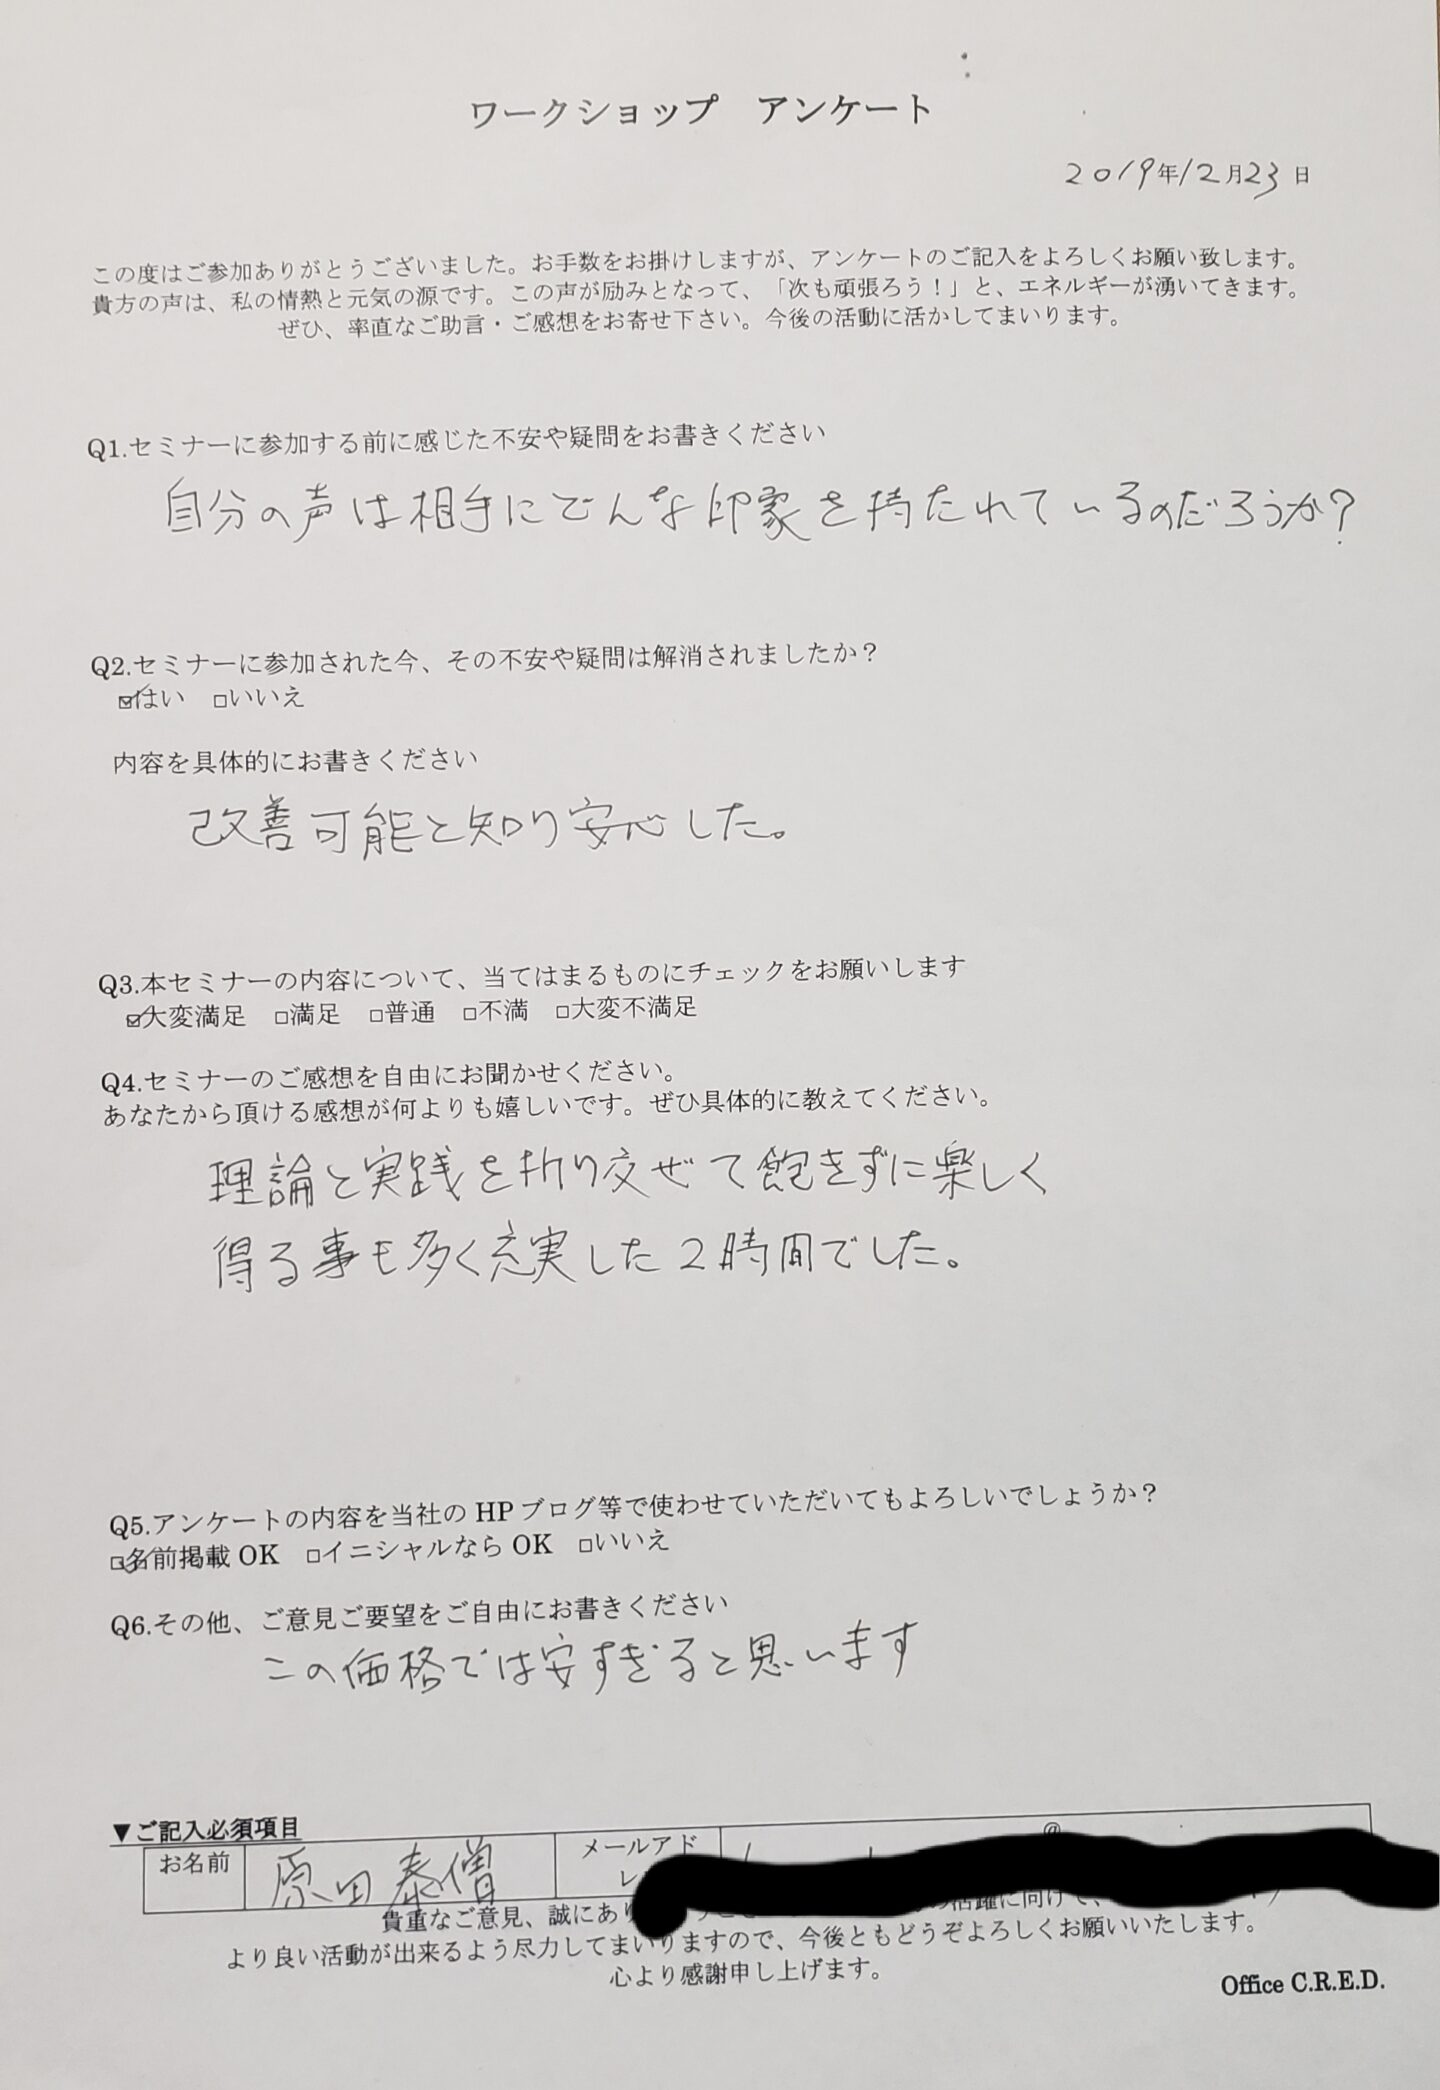 ワークショップ　アンケート
2019年12月23日
この度はご参加ありがとうございました。お手数をお掛けしますが、アンケートのご記入をよろしくお願い致します。
貴方の声は、私の情熱と元気の源です。この声が励みとなって、「次も頑張ろう！」と、エネルギーが湧いてきます。
ぜひ、率直なご助言・ご感想をお寄せ下さい。今後の活動に活かしてまいります。
Q1.セミナーに参加する前に感じた不安や疑問をお書きください
自分の声は相手にどんな印象を持たれているのだろうか?
Q2.セミナーに参加された今、その不安や疑問は解消されましたか？
☑はい　□いいえ
内容を具体的にお書きください
改善可能と知り安心した。
Q3.本セミナーの内容について、当てはまるものにチェックをお願いします
☑大変満足　□満足　□普通　□不満　□大変不満足
Q4.セミナーのご感想を自由にお聞かせください。
あなたから頂ける感想が何よりも嬉しいです。ぜひ具体的に教えてください。
理論と実践を折り交ぜて飽きずに楽しく
得る事も多く充実した2時間でした。
Q5.アンケートの内容を当社の HP ブログ等で使わせていただいてもよろしいでしょうか？
☑名前掲載 OK　□イニシャルなら OK　□いいえ
Q6.その他、ご意見ご要望をご自由にお書きください
この価格では安すぎると思います
▼ご記入必須項目
お名前 原田泰僧 メールアド @
貴重なご意見、誠にあり の活躍に向けて、
より良い活動が出来るよう尽力してまいりますので、今後ともどうぞよろしくお願いいたします。
心より感謝申し上げます。
Office C.R.E.D.